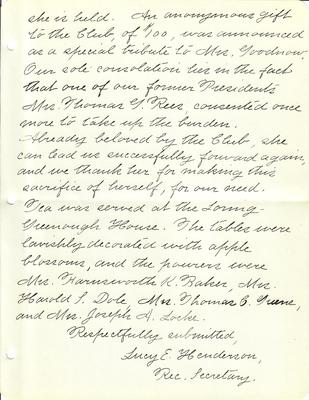 she is held. An anonymous gift
to the Club, of $100, was announced
as a special tribute to Mrs. Goodnow.
Our sole consolation lies in the fact
that one of our former Presidents
Mrs. Thomas G. Rees consented once
more to take up the burden.
Already beloved by the Club, she
can lead us successfully forward again,
and we thank her for making this
sacrifice of herself, for our need.
Tea was served at the Loring-
Greenough House. The tables were
lavishly decorated with apple
blossoms, and the pourers were
Mrs. Farnsworth K. Baker, Mrs.
Harold S. Dole, Mrs. Thomas C.
and Mrs. Joseph A. Locke.
Respectfully submitted,
Lucy E. Henderson,
Rec. Secretary.